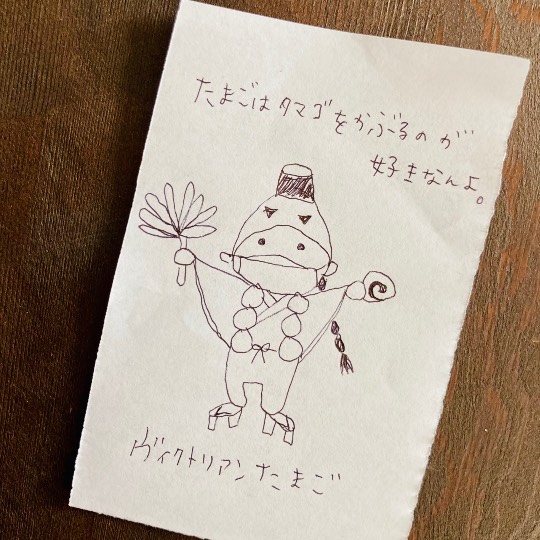 たまごはタマゴをかぶるのが
好きなんよ。
ヴィクトリアンたまご